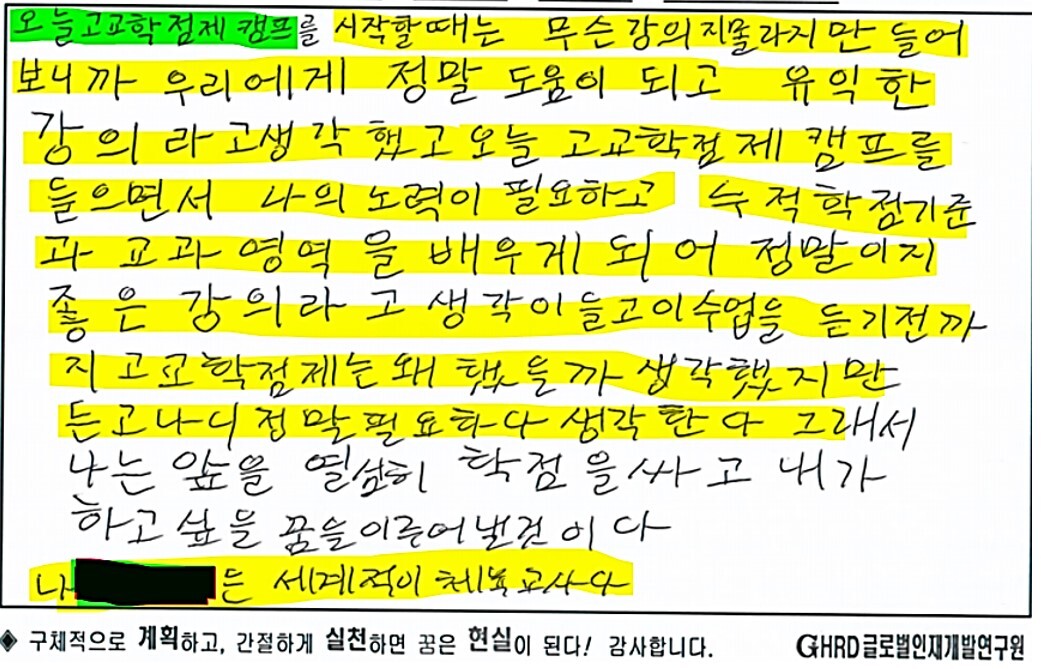 오늘고교학점제 캠프를 시작할때는 무슨강의지몰라지만 들어
보니까 우리에게 정말 도움이 되고 유익한
강의 라고생각했고오늘 고교학점제 캠프를
들으면서 나의노력이 필요하고 수적학점기준
과 교과 영역을 배우게 되어 정말이지
좋은 강의라고 생각이들고이수업을 듣기전까
지고교학점제는왜 했들까 생각했지만
든고나니정말필요하다 생각한다 그래서
나는 앞을 열심히 학점을싸고 내가
하고싶을 꿈을이루어낼건이다
나 는 세계적이 체육교사다
◈ 구체적으로 계획하고, 간절하게 실천하면 꿈은 현실이 된다! 감사합니다. GHRD글로벌인재개발연구원